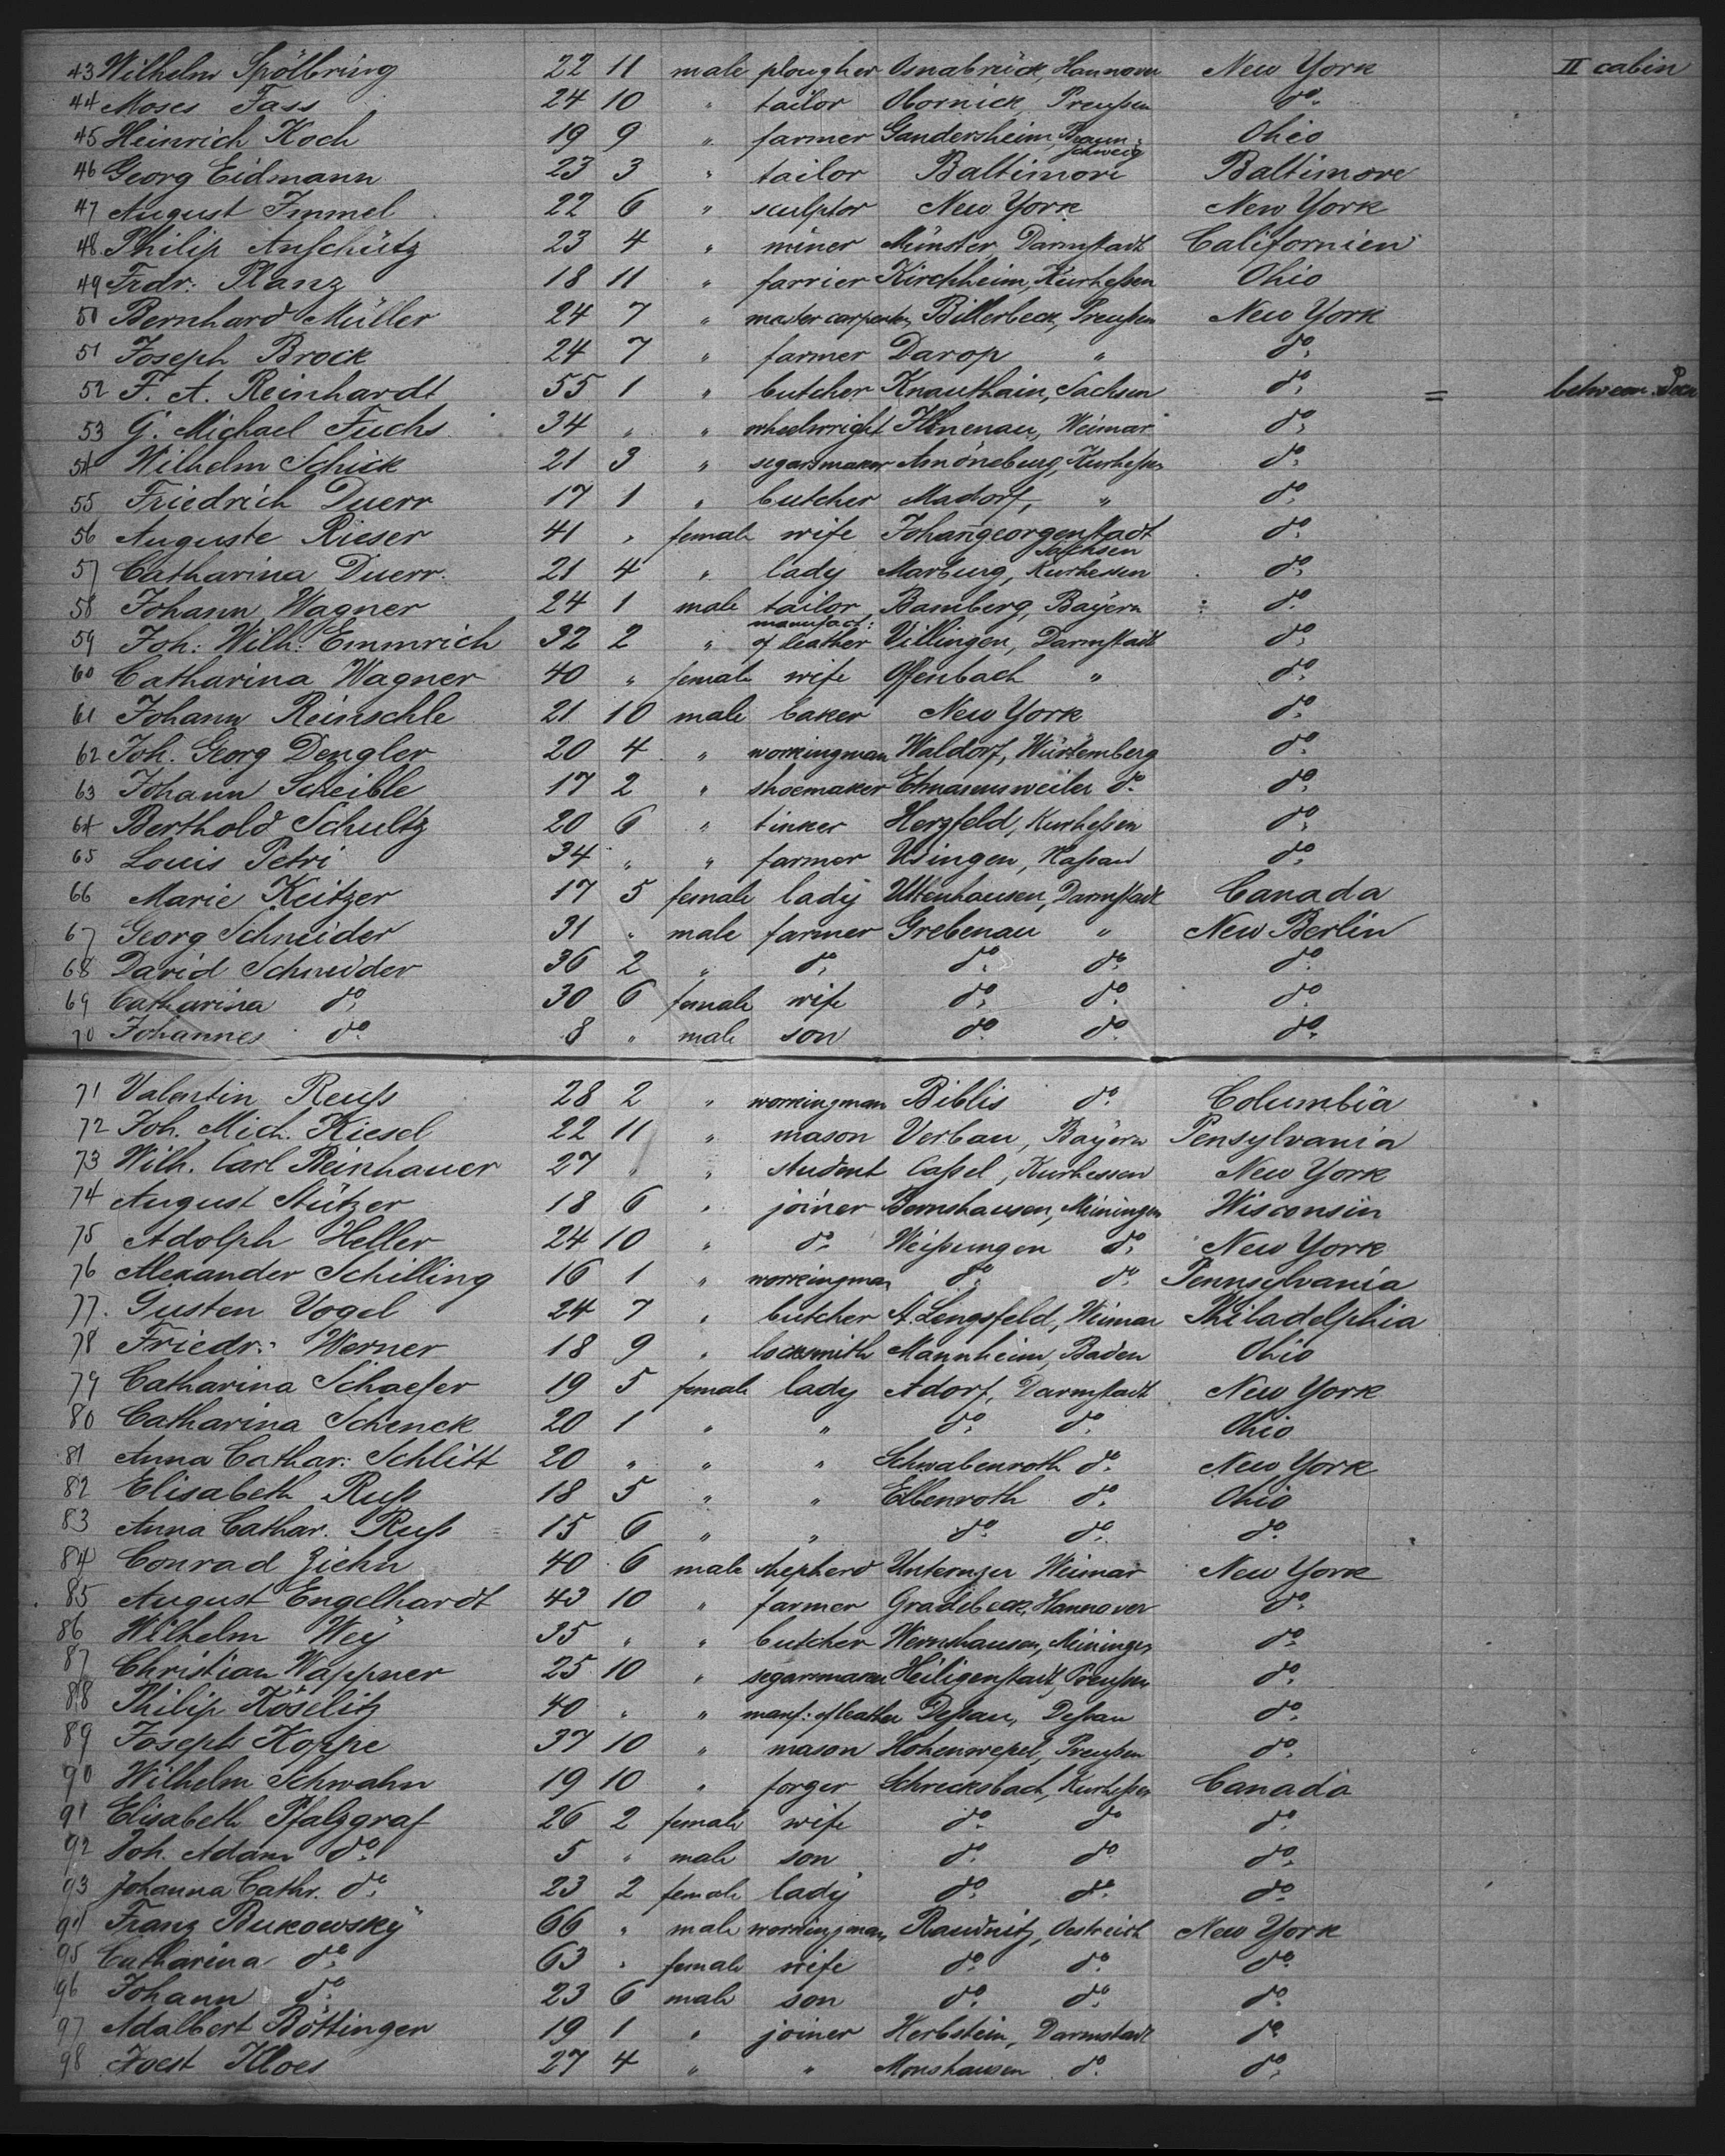 43 Wilhelm Spölbring 22 11 male plougher Osnabrück, Hannover New York II cabin
44 Moses Fass 24 10 " tailor Obornick Preußen do.
45 Heinrich Koch 19 9 " farmer Gandersheim, Braunschweig Ohio
46 Georg Eidmann 23 3 " tailor Baltimore Baltimore
47 August Immel 22 6 " sculptor New York New York
48 Philip Anschütz 23 4 " miner Münster, Darmstadt Californien
49 Frdr: Planz 18 11 " farrier Kirchheim, Kurheßen Ohio
50 Bernhard Müller 24 7 " master carpenter Billerbeck, Preußen New York
51 Joseph Brock 24 7 " farmer Darop " do.
52 F. A. Reinhardt 55 1 " butcher Knauthain, Sachsen do. = between
53 G. Michael Fuchs 34 " " wheelwright Weimar do.
54 Wilhelm Schick 21 3 " segarsmaker Amöneburg, Kurheßen do.
55 Friedrich Duerr 17 1 " butcher Madorf, " do.
56 Auguste Rieser 41 " female wife Johangeorgenstadt Sachsen do.
57 Catharina Duerr. 21 4 " lady Marburg, Kurhessen do.
58 Johann Wagner 24 1 male tailor Bamberg, Bayern do.
59 Joh: Wilh: Emmrich 32 2 " manufact: of leather Villingen, Darmstadt do.
60 Catharina Wagner 40 " female wife Offenbach " do.
61 Johann Reinschle 21 10 male baker New York do.
62 Joh. Georg Dengler 20 4 " workingman Waldorf, Würtemberg do.
63 Johann Scheible 17 2 " shoemaker Etmasensweiler do. do.
64 Berthold Schultz 20 6 " tinker Herzfeld, Kurheßen do.
65 Louis Petri 34 " " farmer Usingen, Naßau do.
66 Marie Keitzer 17 5 female lady Darmstadt Canada
67 Georg Schneider 31 " male farmer Grebenau " New Berlin
68 David Schneider 36 2 " do. do. do. do.
69 Catharina do. 30 6 female wife do. do. do.
70 Johannes do. 8 " male son do. do. do.
71 Valentin Reuß 28 2 " workingman Biblis do. Columbia
72 Joh. Mich. Kiesel 22 11 " mason Verbau, Bayern Pensylvania
73 Wilh. Carl Beinhauer 27 " " student Caßel, Kurhessen New York
74 August Stützer 18 6 " joiner Bernshausen, Meiningen Wisconsin
75 Adolph Heller 24 10 " do. Weißungen do. New York
76 Alexander Schilling 16 1 " workingman do. do. Pennsylvania
77. Gusten Vogel 24 7 " butcher St. Lengsfeld, Weimar Philadelphia
78 Friedr: Werner 18 9 " locksmith Mannheim, Baden Ohio
79 Catharina Schaefer 19 5 female lady Adorf, Darmstadt New York
80 Catharina Schenck 20 1 " " do. do. Ohio
81 Anna Cathar: Schlitt 20 " " " Schwabenroth do. New York
82 Elisabeth Ruß 18 5 " " Elbenroth do. Ohio
83 Anna Cathar. Ruß 15 6 " " do. do. do.
84 Conrad Ziehn 40 6 male shepherd Weimar New York
85 August Engelhardt 43 10 " farmer Gradebeck, Hannover do.
86 Wilhelm Wey 35 " " butcher Wernshausen, Meiningen do.
87 Christian Wappner 25 10 " segarsmaker Heiligenstadt, Preußen do.
88 Philip Köselitz 40 " " manf: of leather Deßau, Deßau do.
89 Joseph Koppe 37 10 " mason Hohenwepel, Preußen do.
90 Wilhelm Schwahn 19 10 " forger Schrecksbach, Kurheßen Canada
91 Elisabeth Pfalzgraf 26 2 female wife do. do. do.
92 Joh. Adam do. 5 " male son do. do. do.
93 Johanna Cathr. do. 23 2 female lady do. do. do.
94 Franz Bukowsky 66 " male workingman Raudnitz, Oestreich New York
95 Catharina do. 63 " female wife do. do. do.
96 Johann do. 23 6 male son do. do. do.
97 Adalbert Böttinger 19 1 " joiner Herbstein, Darmstadt do.
98 Joest Kloes 27 4 " " Monshausen do. do.